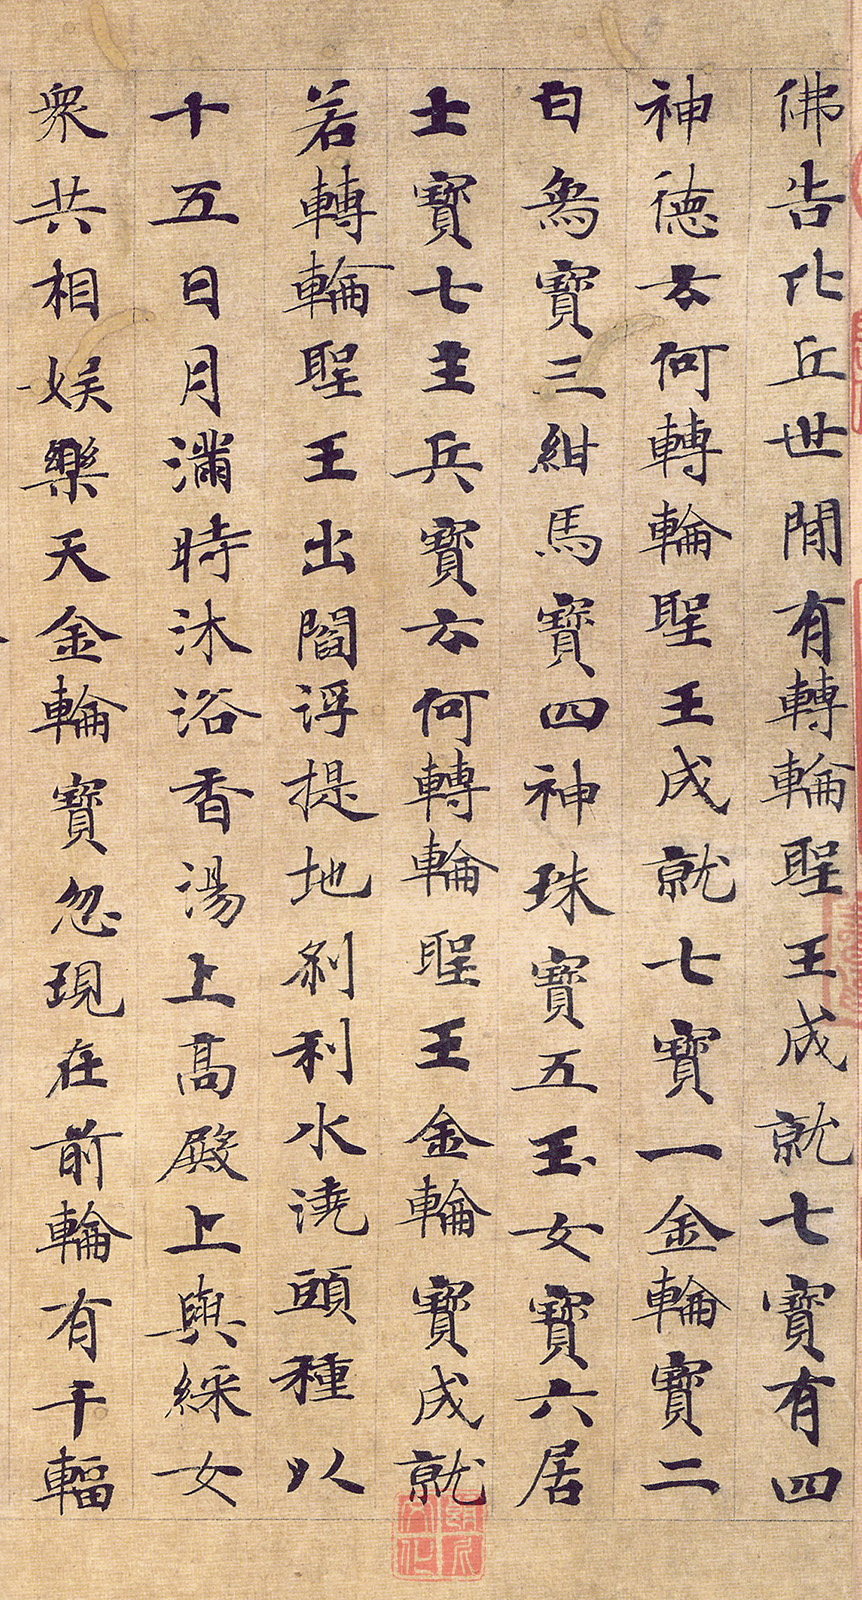 佛告比丘世間有轉輪聖王成就七寶有四
神德云何轉輪聖王成就七寶一金輪寶二
白象寶三紺馬寶四神珠寶五玉女寶六居
士寶七主兵寶云何轉輪聖王金輪寶成就
若轉輪聖王出閻浮提地刹利水澆頭種以
十五日月滿時沐浴香湯上高殿上與綵女
眾共相娛樂天金輪寶忽現在前輪有千輻